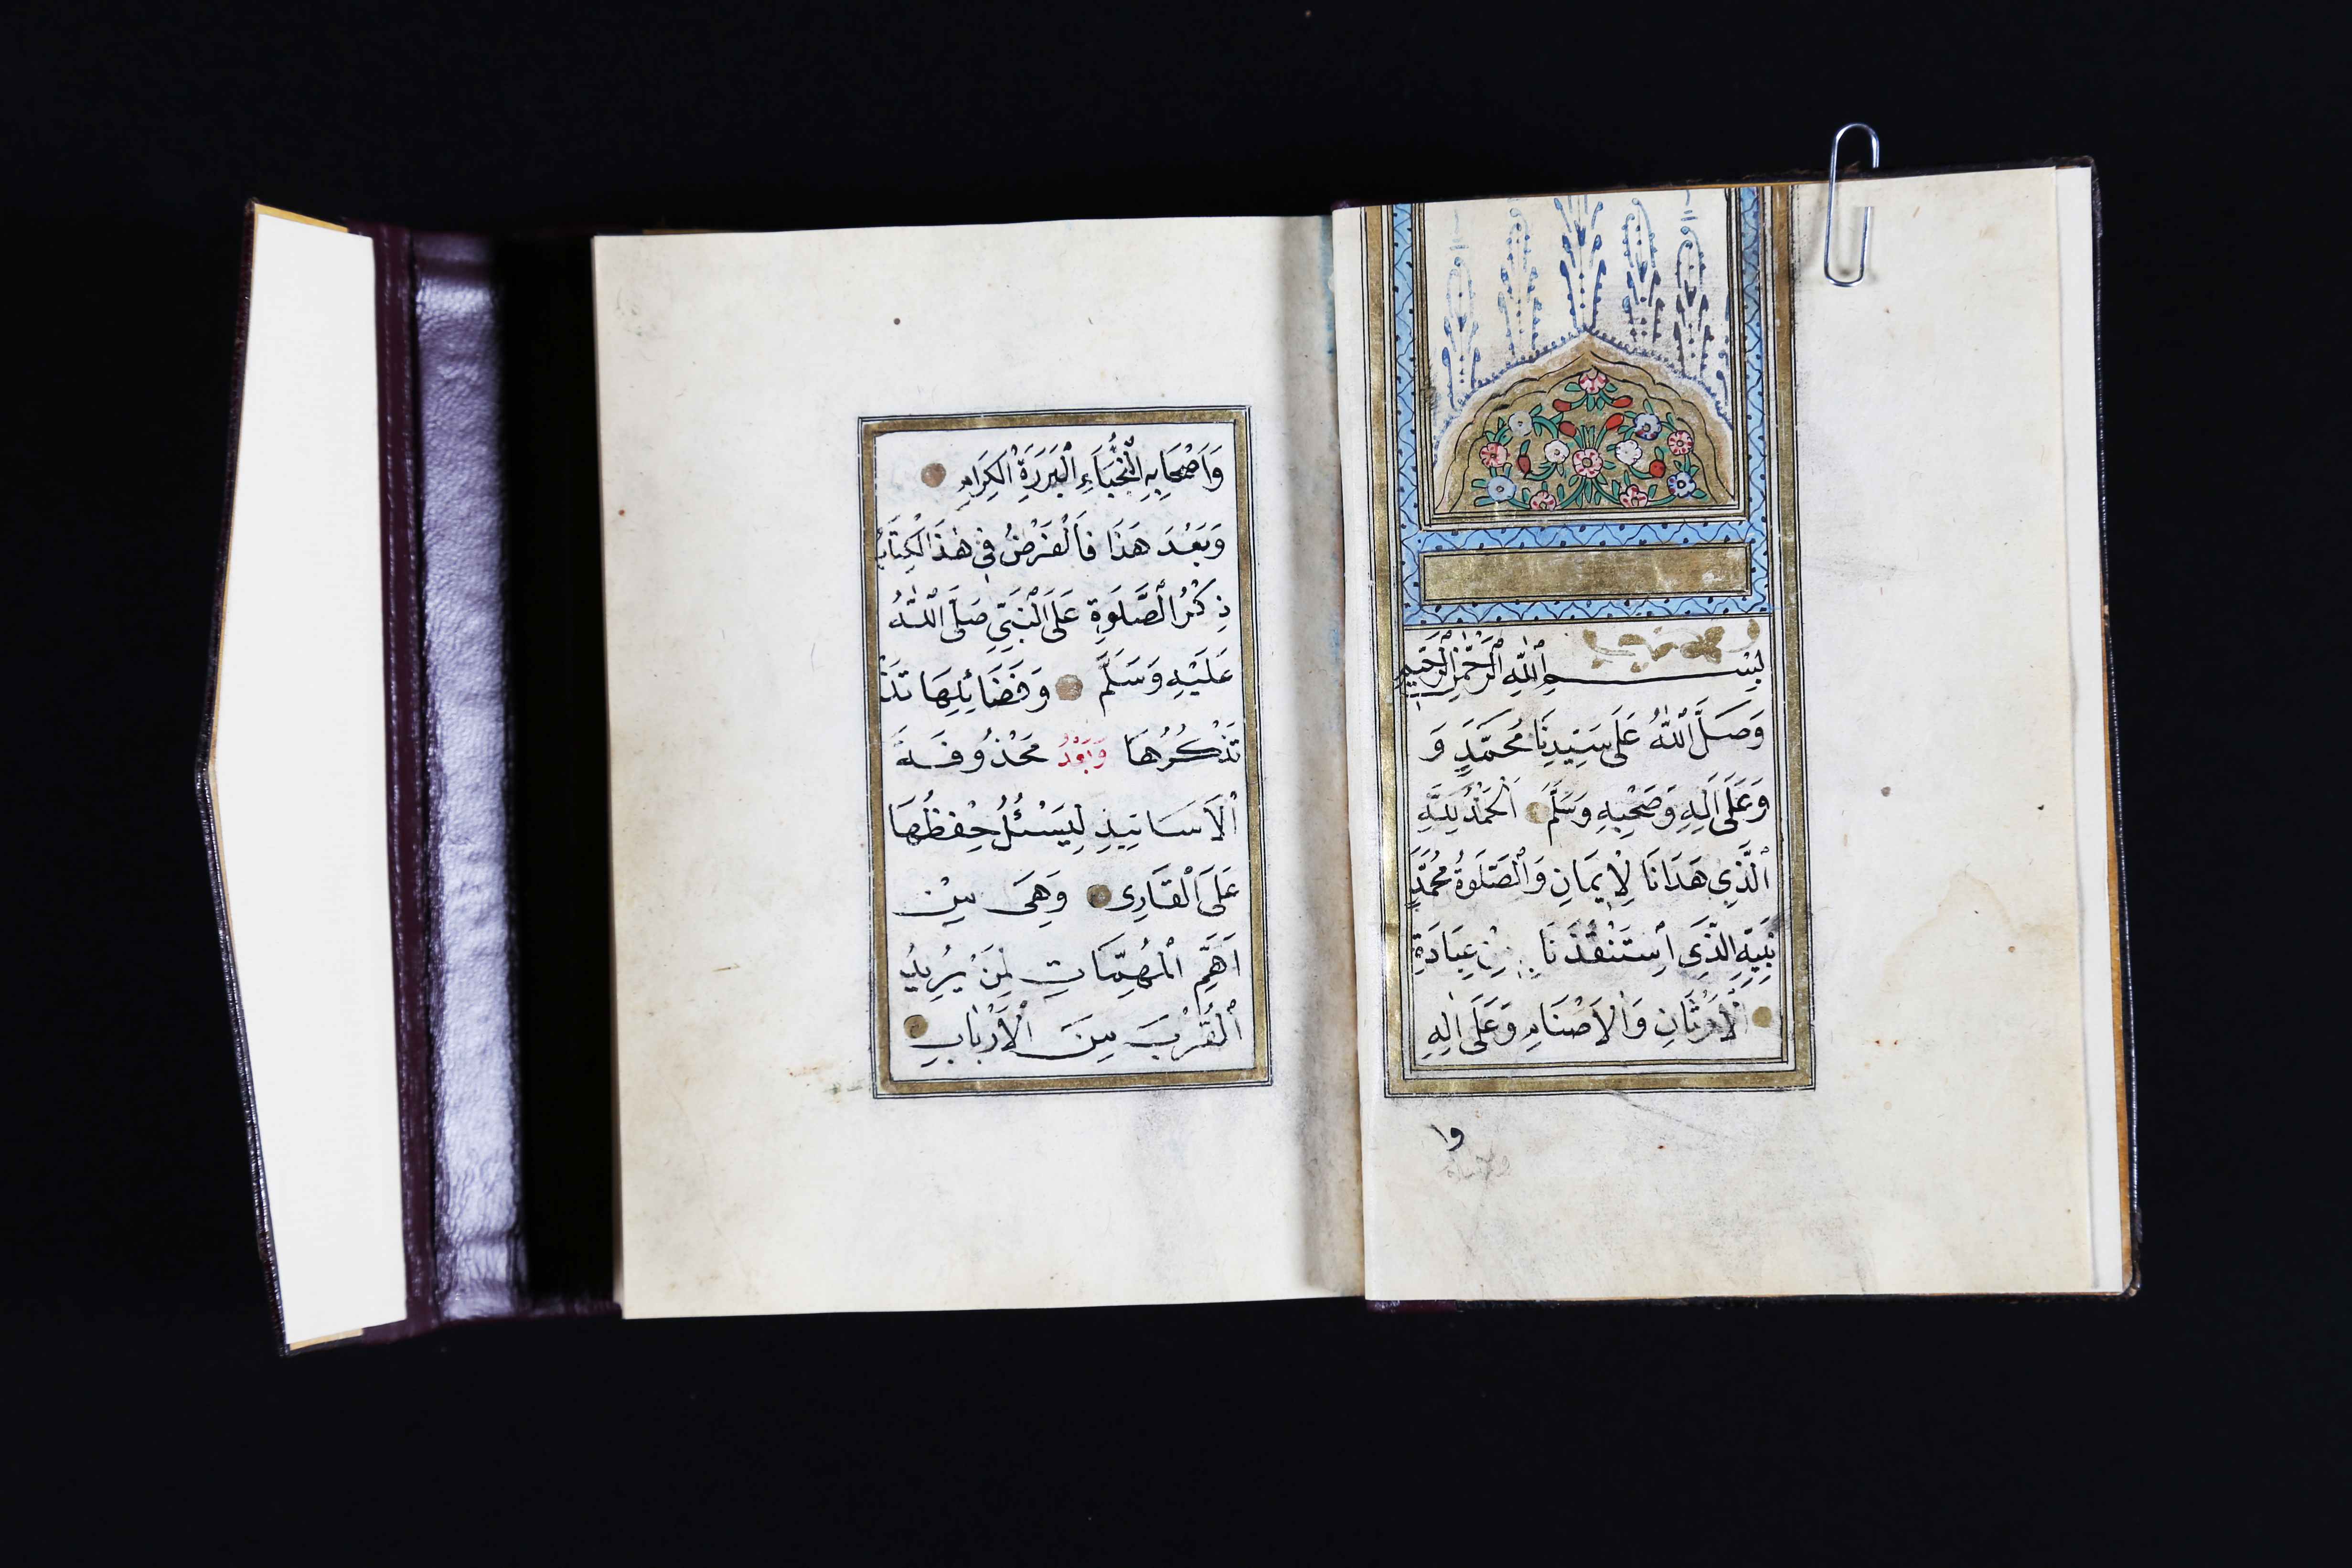 بِسْمِ اللّٰهِ الرَّحْمٰنِ الرَّحِيمِ
وَصَلَّى اللّٰهُ عَلَى سَيِّدِنَا مُحَمَّدٍ وَ
وَعَلَى اٰلِهِ وَصَحْبِهِ وَسَلَّمَ اَلْحَمْدُ لِلّٰهِ
الَّذِي هَدَانَا لِلْاِيمَانِ وَالصَّلٰوةُ مُحَمَّدٍ
نَبِيِّهِ الَّذِي اِسْتَنْقَذَنَا مِنْ عِبَادَةِ
الْاَوْثَانِ وَالْاَصْنَامِ وَعَلَى اٰلِهِ
وا
وَاَصْحَابِهِ النُّجَبَاءِ الْبَرَرَةِ الْكِرَامِ
وَبَعْدَ هَذَا فَالْغَرَضُ فِي هٰذَا الْكِتَابِ
ذِكْرُ الصَّلٰوةِ عَلَى النَّبِيِّ صَلَّى اللّٰهُ
عَلَيْهِ وَسَلَّمَ وَفَضَائِلِهَا نَذْ
نَذْكُرُهَا وَبَعْدُ مَحْذُوفَةَ
الْاَسَانِيدِ لِيَسْئُلُ حِفْظُهَا
عَلَى الْقَارِي وَهِيَ مِنْ
اَهَمِّ الْمُهِمَّاتِ لِمَنْ يُرِيدُ
الْقُرْبَ مِنَ الْاَرْبَابِ